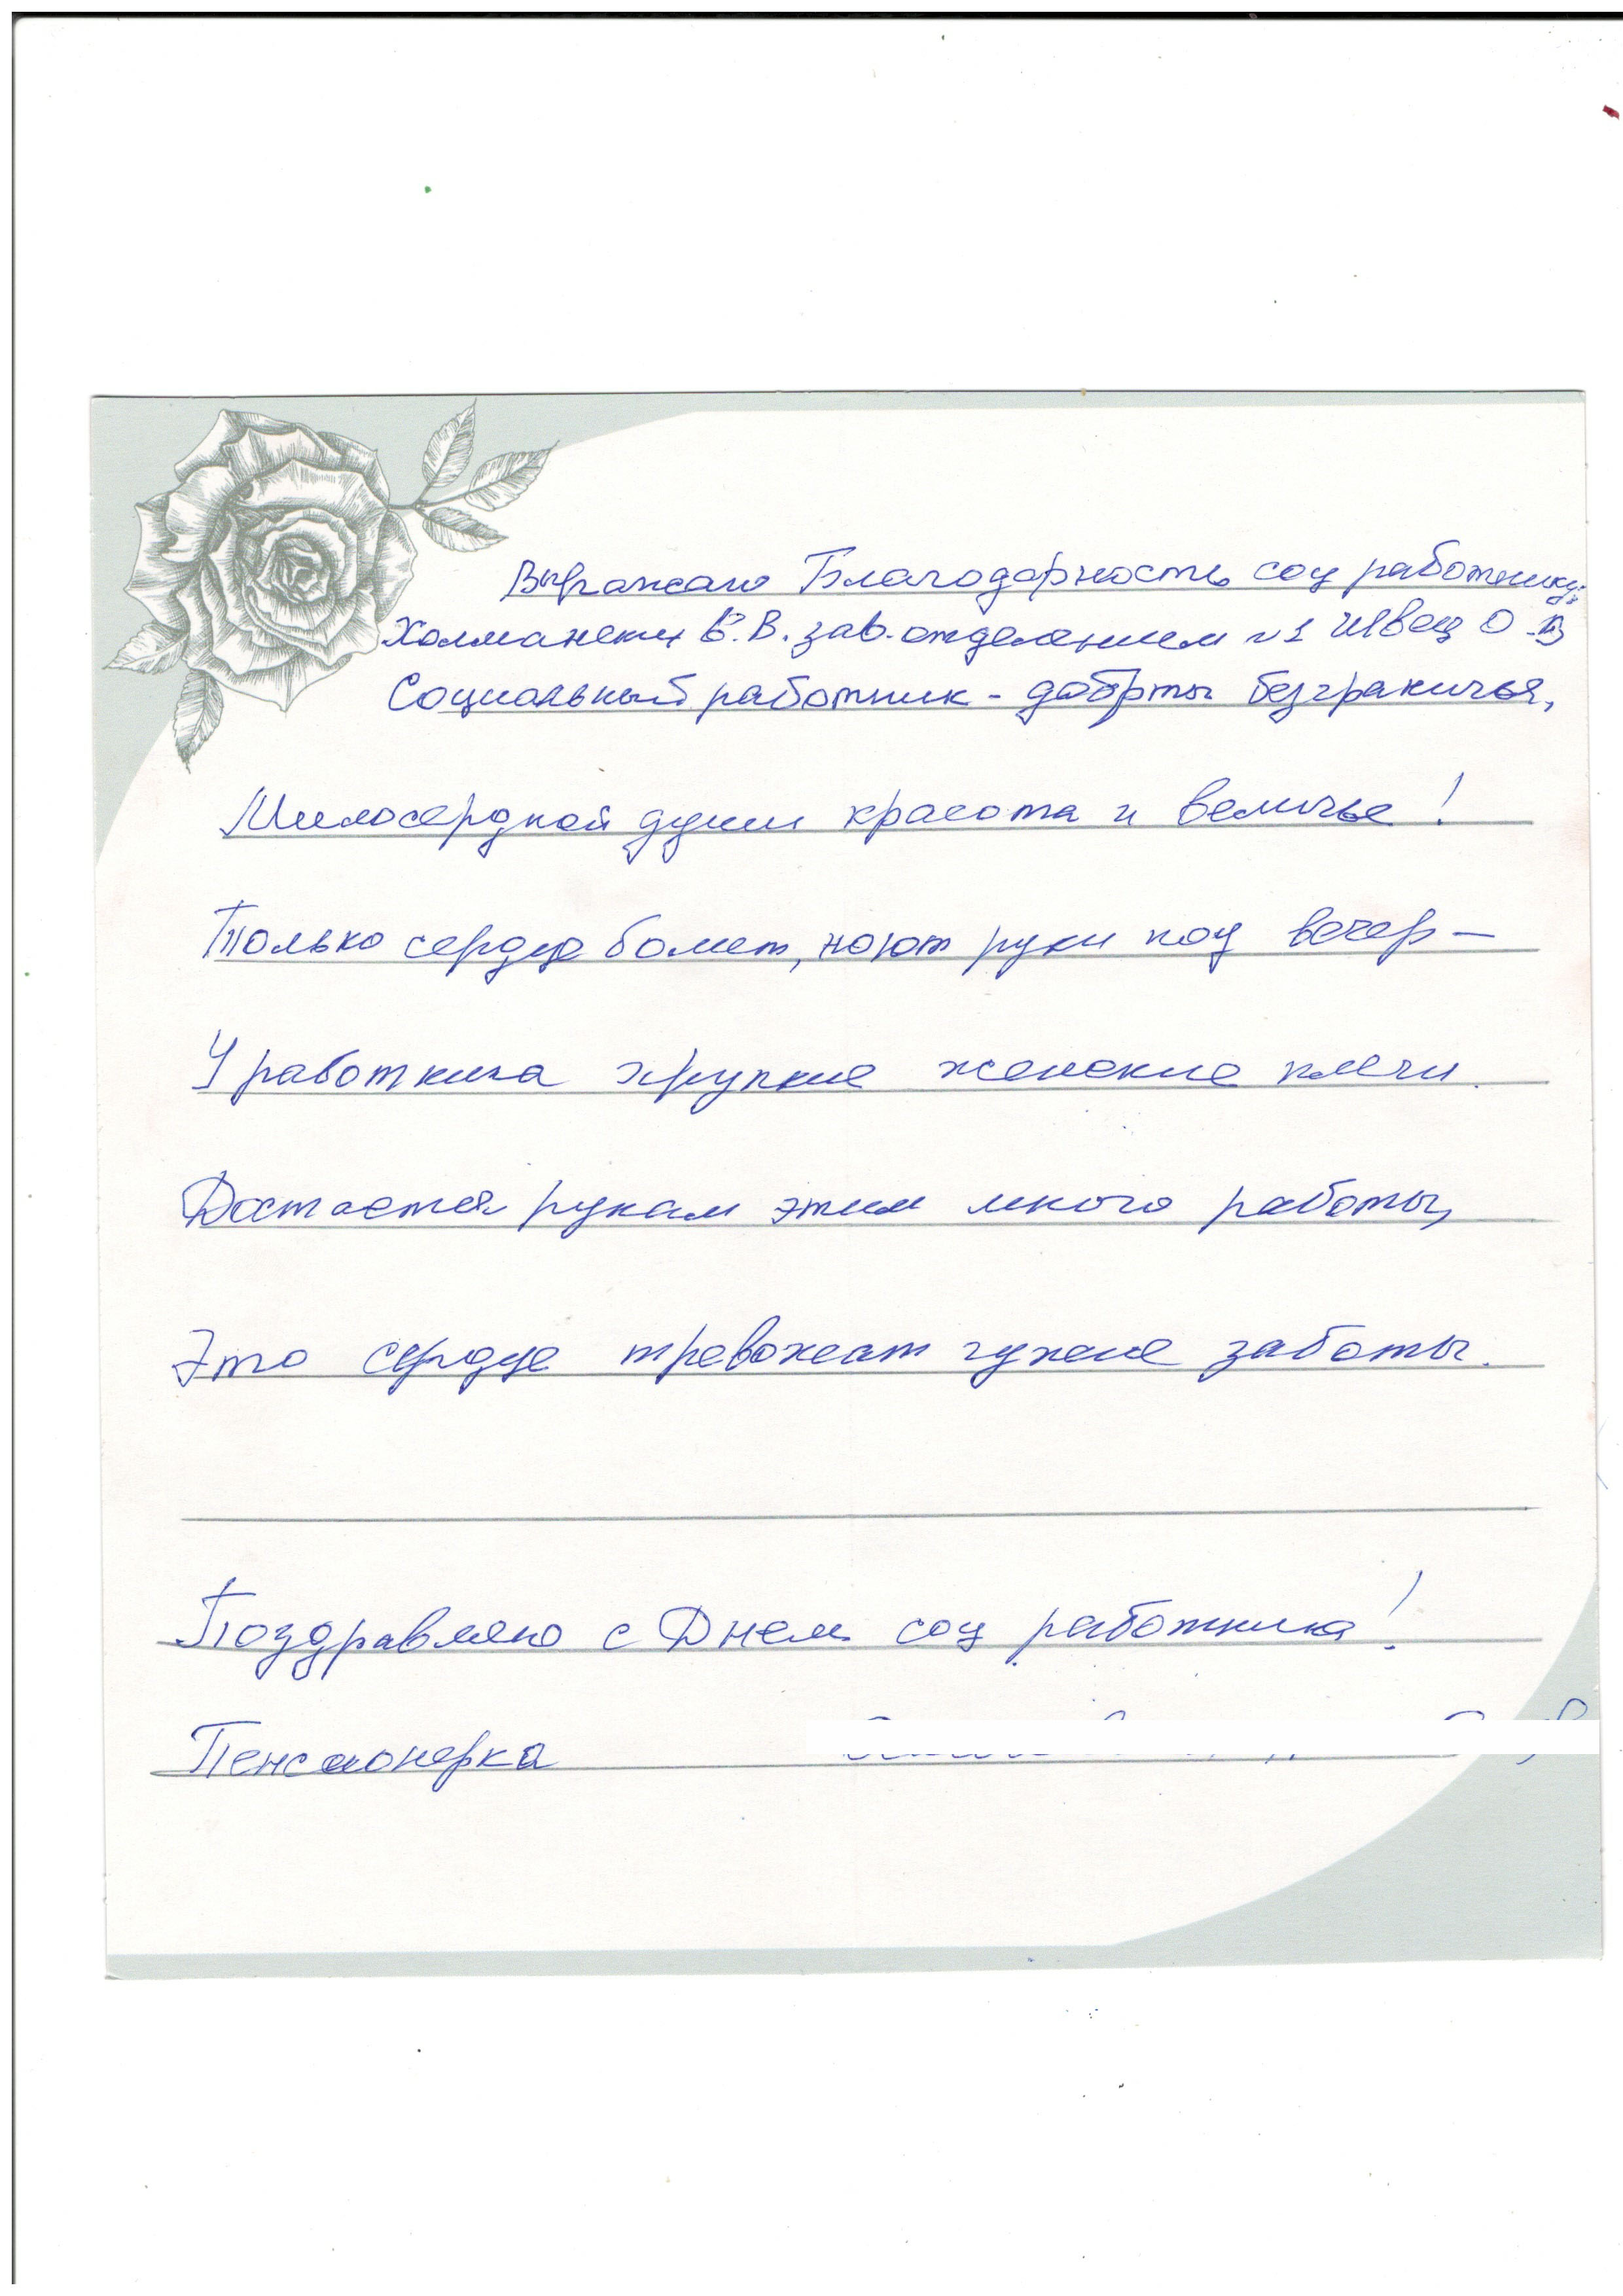 Выражаю Благодарность соц работнику:
Холманских Е.В. зав. отделением №1 Швец О.В
Социальный работник - доброты безграничья,
Милосердной души красота и величье!
Только сердце болит, ноют руки под вечер —
У работника хрупкие женские плечи.
Достается рукам этим много работы,
Это сердце тревожат чужие заботы.
Поздравляю с Днем соц работника!
Пенсионерка